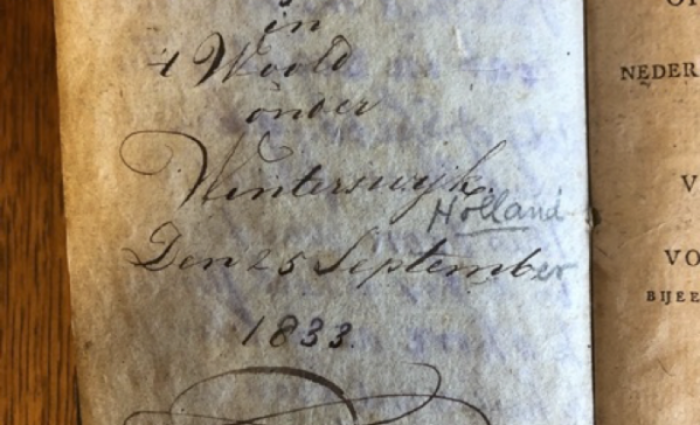 in
't Woold
onder
Winterswyk.
Holland
Den 25 September
1833.
NEDER
V
VO
BIJEE